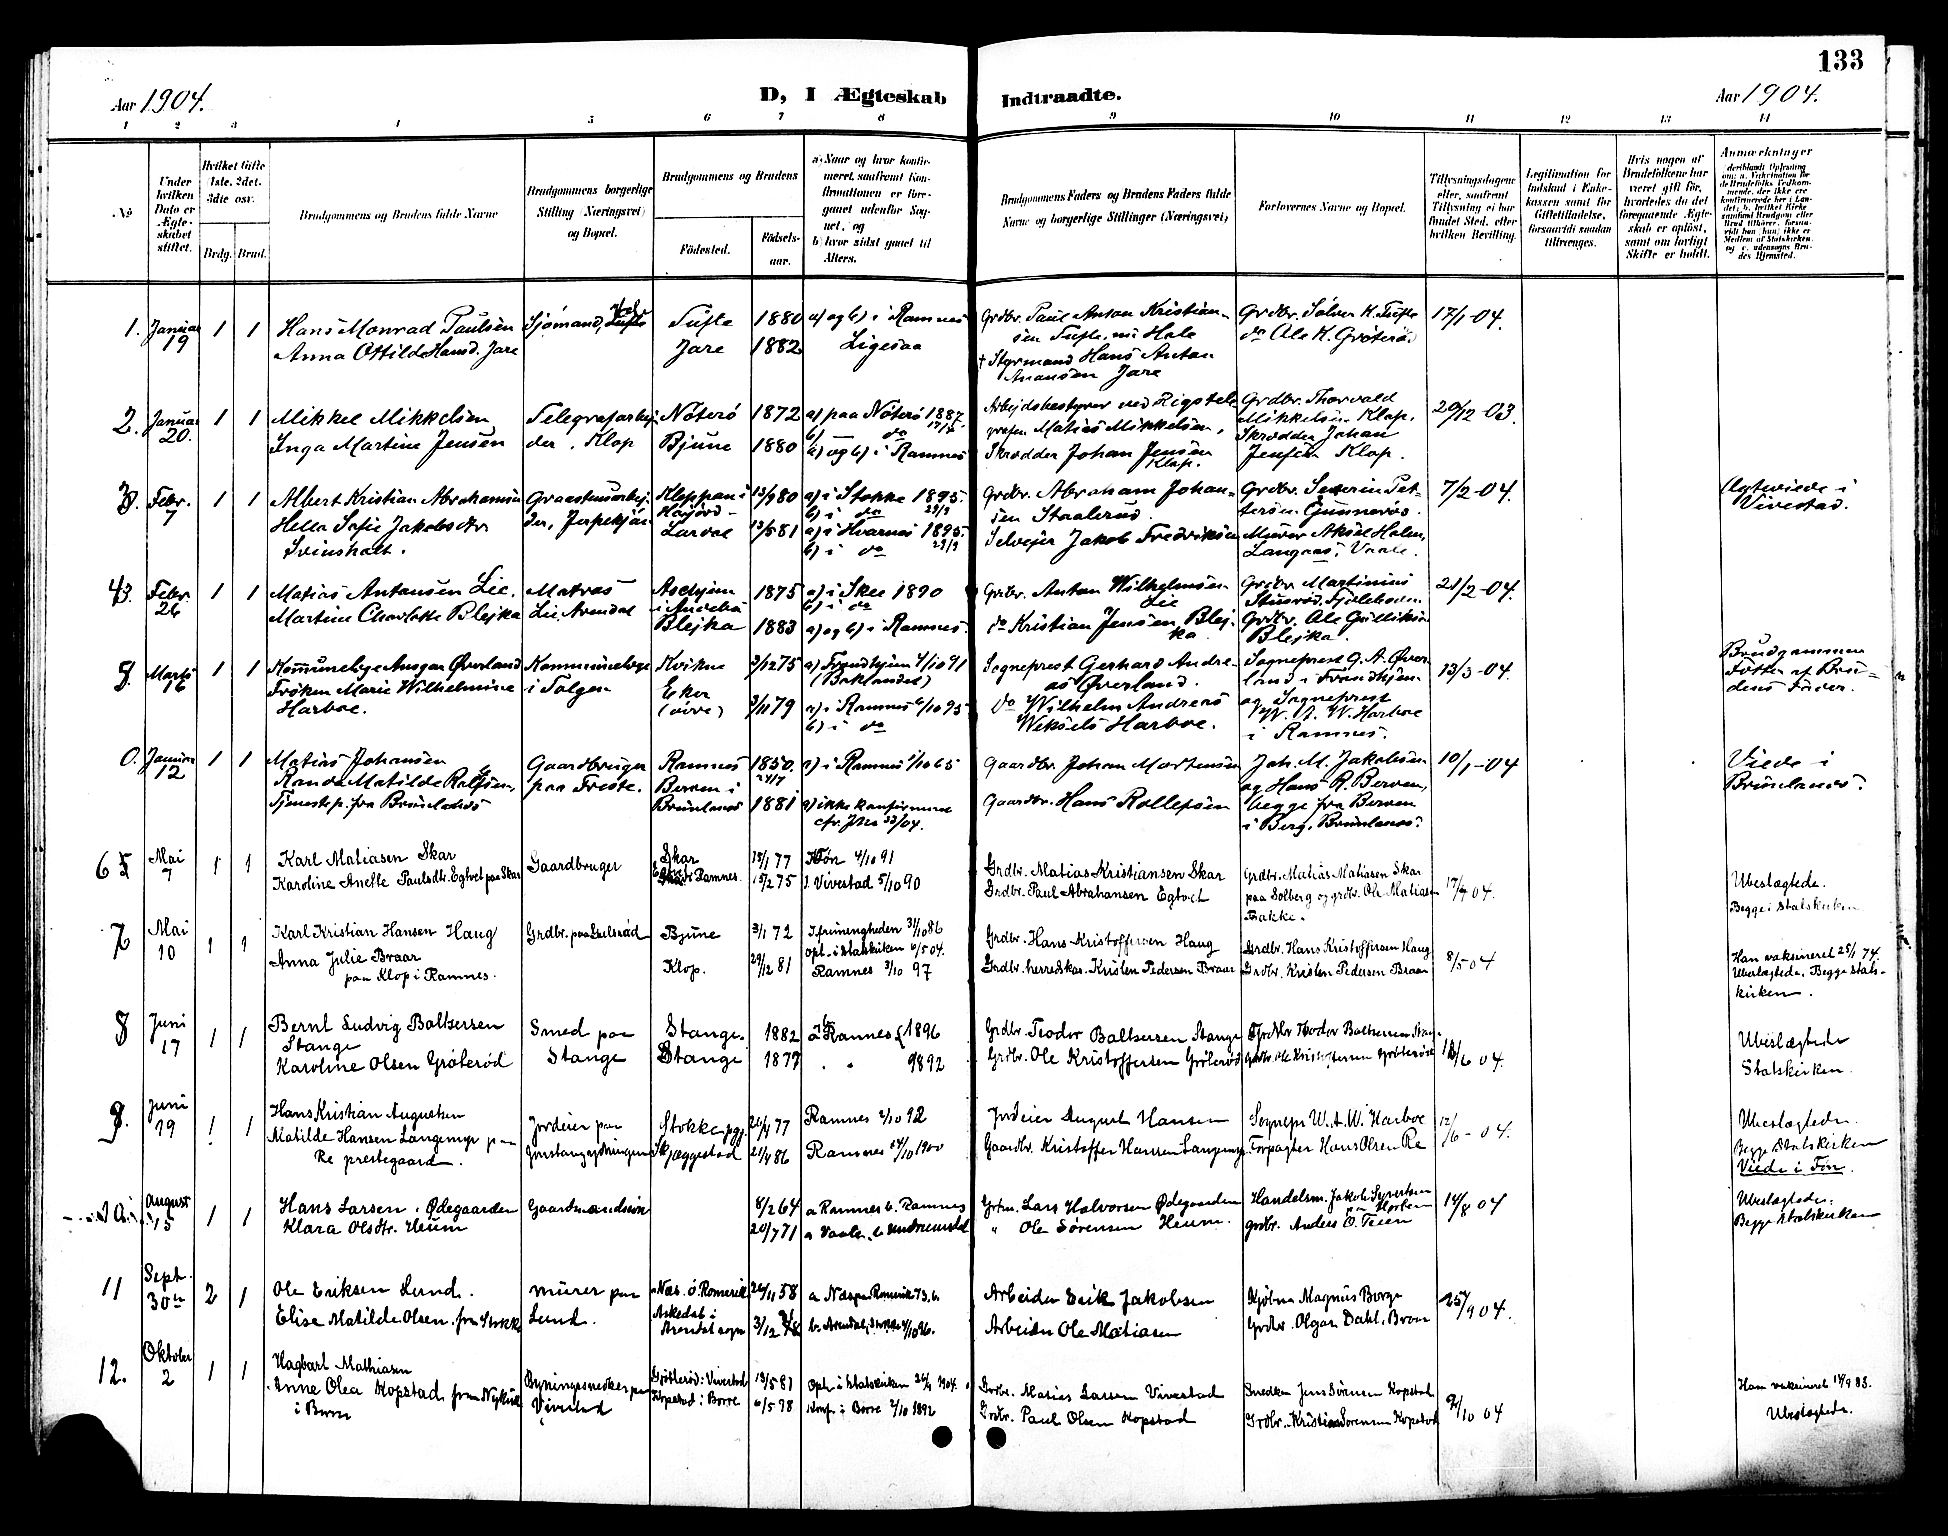 133
Aar 1904.
D, I Ægteskab
Indtraadte.
Aar 1904.
1 2 3 4 5 6 7 8 9 10 11 12 13 14
No
Under hvilken Dato er Ægteskabet stiftet.
Hvilket Gifte 1ste, 2det, 3die osv.
Brdg. Brud.
Brudgommens og Brudens fulde Navne
Brudgommens borgerlige Stilling (Næringsvei) og Bopæl.
Brudgommens og Brudens
Fødested.
Fødselsaar.
a) Naar og hvor konfirmeret, saafremt Konfirmationen er foregaaet udenfor Sognet, og
b) hvor sidst gaaet til Alters.
Brudgommens Faders og Brudens Faders fulde Navne og borgerlige Stillinger (Næringsvei)
Forlovernes Navne og Bopæl.
Tillysningsdagene eller, saafremt Tillysning ei har fundet Sted, efter hvilken Bevilling.
Legitimation for Indskud i Enkekassen samt for Giftetilladelse, forsaavidt saadan tiltrænges.
Hvis nogen af Brudefolkene har været gift før, hvorledes da det foregaaende Ægteskab er opløst, samt om lovligt Skifte er holdt.
Anmærkninger
1. Januar 19 1 1
Hans Monrad Paulsen
Anna Ottilde Hansd. Jare
Sjømand,
Tufte 1880
Jare 1882
a) og b) i Ramnes
Ligesaa
Grdbr. Paul Anton Kristiansen Tufte, nu Hale
† Styrmand Hans Anton Anansen Jare
Grdbr. Sølver K. Tufte
do Ole K. Grøterø.
17/1-04.
2. Januar 20. 1 1
Mikkel Mikkelsen
Inga Martine Jensen
Telegrafarbeider, Klop
Nøterø 1872
Bjune 1880
a) paa Nøterø 1887
b) do
a) og b) i Ramnes
Arbejdsbestyrer ved Rigstelegrafen Matias Mikkelsen,
Skrædder Johan Jensen Klop.
Grdbr. Thorvald Mikkelsen, Klop.
Skrædder Johan Jensen Klop.
20/12-03.
3. Febr. 7 1 1
Albert Kristian Abrahamsen
Hella Sofie Jakobsdtr. Svinsholt.
Graastensarbejder, Jerpekjøn
Kleppan i
Larvee
13/9 80
13/5 81
a) i Stokke 1895.
b) i do
a) i Hvarnes 1895.
b) i do
Grdbr. Abraham Johansen Staalerød.
Selvejer Jakob Fredriksen
Grdbr. Severin Pettersen Gunnerød.
Murer Aksel Holm, Langaas, Vaale.
7/2-04.
Ægteviede i Vivestad.
4 Febr. 26 1 1
Matias Antonsen Lie.
Martine Charlotte Blejka
Matros
Lie, Arendal
Askjem i Andebu 1875
Blejka 1883
a) i Skee 1890
b) i do
a) og b) i Ramnes.
Grdbr. Anton Wilhelmsen Lie
do Kristian Jensen Blejka.
Grdbr. Martinius
Grdbr. Ole Gulliksen Blejka.
21/2-04.
5. Marts 16 1 1
Kommunelæge Ansgar Øverland
Frøken Marie Wilhelmine Harboe.
Kommunelæge i Tolgen
Kvikne 2/12 75
Eker (øvre) 3/11 79
a) Trondhjem 4/10 91 (Baklandet)
a) i Ramnes 6/10 95
b) i do
Sogneprest Gerhard Andreas Øverland.
do Wilhelm Andreas Weksels Harboe.
Sogneprest G. A. Øverland i Trondhjem og Sogneprest W. A. W. Harboe i Ramnes.
13/3-04.
Brudgommen Fætter af Brudens Fader.
0. Januar 12 1 1
Matias Johansen
Randa Matilde Rolfsen,
Tjenestep. fra Brunlanes
Gaardbruger paa Freste.
Ramnes 1850. 24/7
Berven i Brunlanes 1881
a) i Ramnes 1/10 65
a) ikke konfirmeret cfr. Jrnr 33/04.
Gaardbr. Johan Mortensen
Gaardbr. Hans Rollefsen
Joh. M. Jakobsen og Hans R. Berven, begge fra Berven i Berg, Brunlanes.
10/1-04
Viede i Brunlanes.
6 Mai 7 1 1
Karl Matiasen Skar
Karoline Anette Paulsdtr. Egtvet paa Skar
Gaardbruger
Skar 18/1 77
Ramnes. 15/2 75
Tøn 4/10 91
i Vivestad 5/10 90
Grdbr. Matias Kristiansen Skar
Grdbr. Paul Abrahamsen Egtvet
Grdbr. Matias Matiasen Skar
paa Solberg og grdbr. Ole Matiasen Bakke.
17/4 04.
Ubeslægtede.
Begge i Statskirken
7 Mai 10 1 1
Karl Kristian Hansen Haug
Anna Julie Braar
paa Klop i Ramnes.
Grdbr. paa
Bjune 3/1 72
Klop. 29/12 81
I frimenigheden 31/10 86
Opt. i Statskirken 6/5 04.
Ramnes 3/10 97
Grdbr. Hans Kristoffersen Haug
Grdbr. herredskas. Kristen Pedersen Braar
Grdbr. Hans Kristoffersen Haug
Grdbr. Kristen Pedersen Braar
8/5 04
Han vaksineret 25/1 74.
Ubeslægtede. Begge statskirken.
8 Juni 17 1 1
Bernt Ludvig Baltsersen Stange
Karoline Olsen Grøterød
Smed paa Stange
Stange. 1882
Stange 1877
Ramnes 1896
" 1892
Grdbr. Teodor Baltsersen Stange
Grdbr. Ole Kristoffersen Grøterød
Grdbr Teodor Baltsersen Stange
Grdbr. Ole Kristoffersen Grøterød
/6 04.
Ubeslægtede
Statskirken.
9. Juni 19 1 1
Hans Kristian Augustsen
Matilde Hansen Langemyr paa Re prestegaard.
Jordeier paa
Stokke pgj.
Skjæggestad
77
21/4 86
Ramnes 2/10 92
Ramnes 14/10 1900
Jordeier August Hansen
Gaardbr. Kristoffer Hansen Langemyr
Sognepr. W. A. W. Harboe
Forpagter Hans Olsen Re
12/6-04.
Ubeslægtede.
Begge Statskirken
Viede i Tøn.
10. August 15 1 1
Hans Larsen Ødegaarden
Klara Olsdtr. Heum
Gaardmandssøn
8/2 64
20/7 71
a Ramnes b. Ramnes
a Vaale. b. Undrumsdal
Grbr. Lars Halvorsen Ødegaarden
" Ole Sørensen Heum.
Handelsm. Jakob Syvertsen
grdbr. Anders O. Teien
14/8 04
Ubeslægtede.
Begge Statskirken
11 Sept. 30te 2 1
Ole Eriksen Lund.
Elise Matilde Olsen. fra Stokke
murer paa Lund.
Næs. Ø. Romerike 26/11 58
Askedal i Arendal sogn 3/12 78
a Næs paa Romerike 73. b.
b. Arendal, Stokke 4/10 96.
Arbeider Erik Jakobsen
Arbeider Ole Matiasen
Kjøbm Magnus Borge
Grdbr. Olgar Dahl, Borre
25/9 04.
12. Oktober 2 1 1
Hagbart Mathiasen
Anne Olea Kopstad fra Nykirke i Borre
Bygningssnedker paa Vivestad
Grøterød i Vivestad 13/5 81
Kopstad i Borre 6/5 78
Opt. i Statskirken 26/9 1904.
Konf. i Borre 2/10 1892
Grdbr. Matias Larsen Vivestad
Grdbr. Paul Olsen Kopstad
Snedker Jens Sørensen Kopstad
Grdbr. Kristian Sørensen Kopstad
2/10 04
Han vaksineret 14/9 83.
Ubeslægtede.